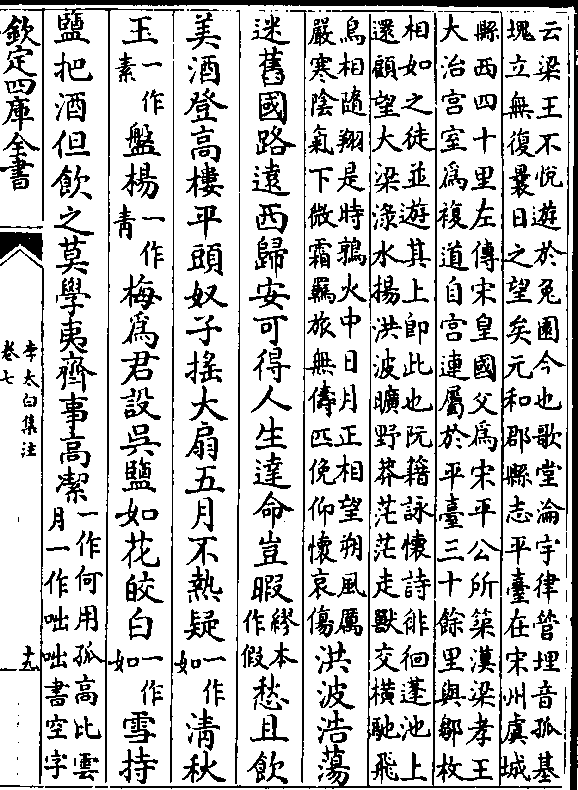 云梁王不悅遊於兔園今也歌堂淪宇律管埋音孤基
塊立無復曩日之望矣元和郡縣志平臺在宋州虞城
縣西四十里左傳宋皇國父為宋平公所築漢梁孝王
大治宮室為複道自宮連屬於平臺三十餘里與鄒枚
相如之徒並遊其上即此也阮籍詠懷詩徘徊蓬池上
還顧望大梁淥水揚洪波曠野莽茫茫走獸交橫馳飛
鳥相隨翔是時鶉火中日月正相望朔風厲
嚴寒陰氣下微霜羈旅無儔匹俛仰懷哀傷
洪波浩蕩
迷舊國路遠西歸安可得人生達命豈暇
繆本
作假
愁且飲
美酒登高樓平頭奴子搖大扇五月不熱疑
一作
如
清秋
玉
一作
素
盤楊
一作
青
梅為君設吳鹽如花皎白
一作
如
雪持
鹽把酒但飲之莫學夷齊事高潔
一作何用孤高比雲
月一作咄咄書空字
欽定四庫全書
李太白集注
卷七
十九